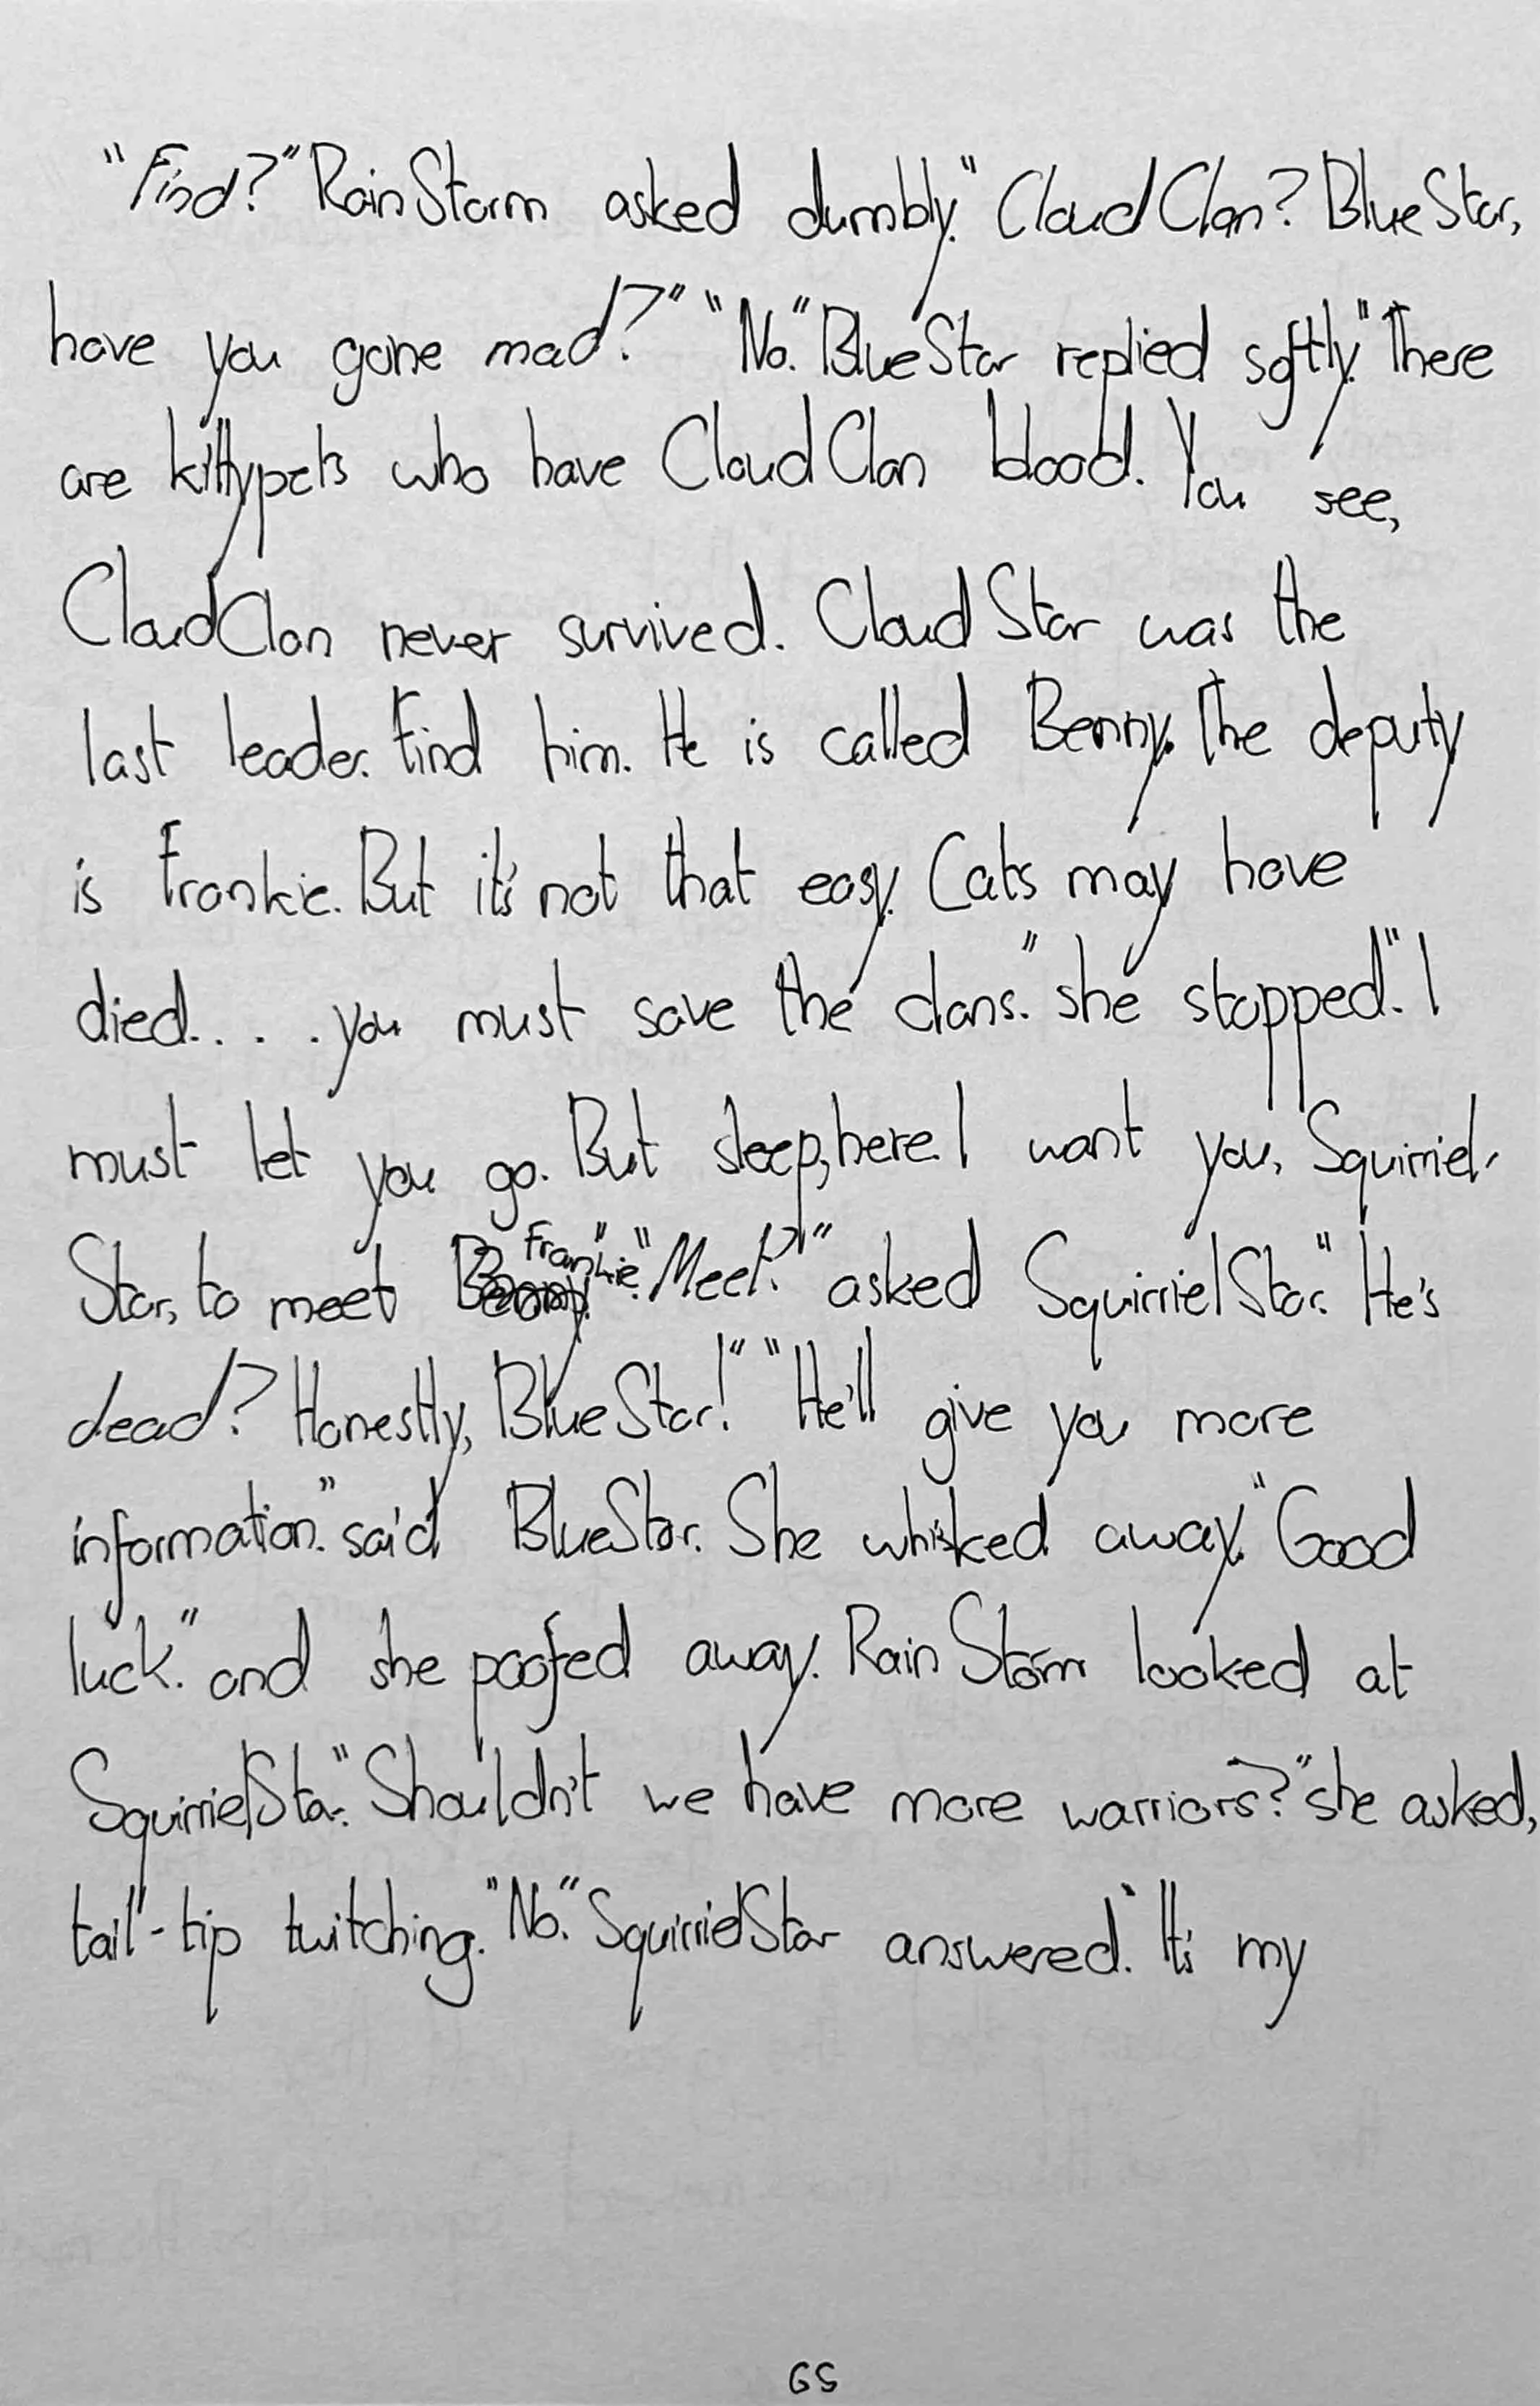 "Find?" RainStorm asked dumbly. "CloudClan? BlueStar,
have you gone mad?" "No." BlueStar replied softly. "There
are kittypets who have CloudClan blood. You see,
CloudClan never survived. CloudStar was the
last leader. Find him. He is called Benny. The deputy
is Frankie. But it's not that easy. Cats may have
died.... you must save the clans." she stopped. "I
must let you go. But sleep, here. I want you, Squirriel-
Star, to meet Frankie." "Meet?" asked SquirrielStar. "He's
dead? Honestly, BlueStar!" "He'll give you more
information." said BlueStar. She whisked away. "Good
luck." and she poofed away. RainStorm looked at
SquirrielStar. "Shouldn't we have more warriors?" she asked,
tail-tip twitching. "No." SquirrielStar answered. "It's my
65